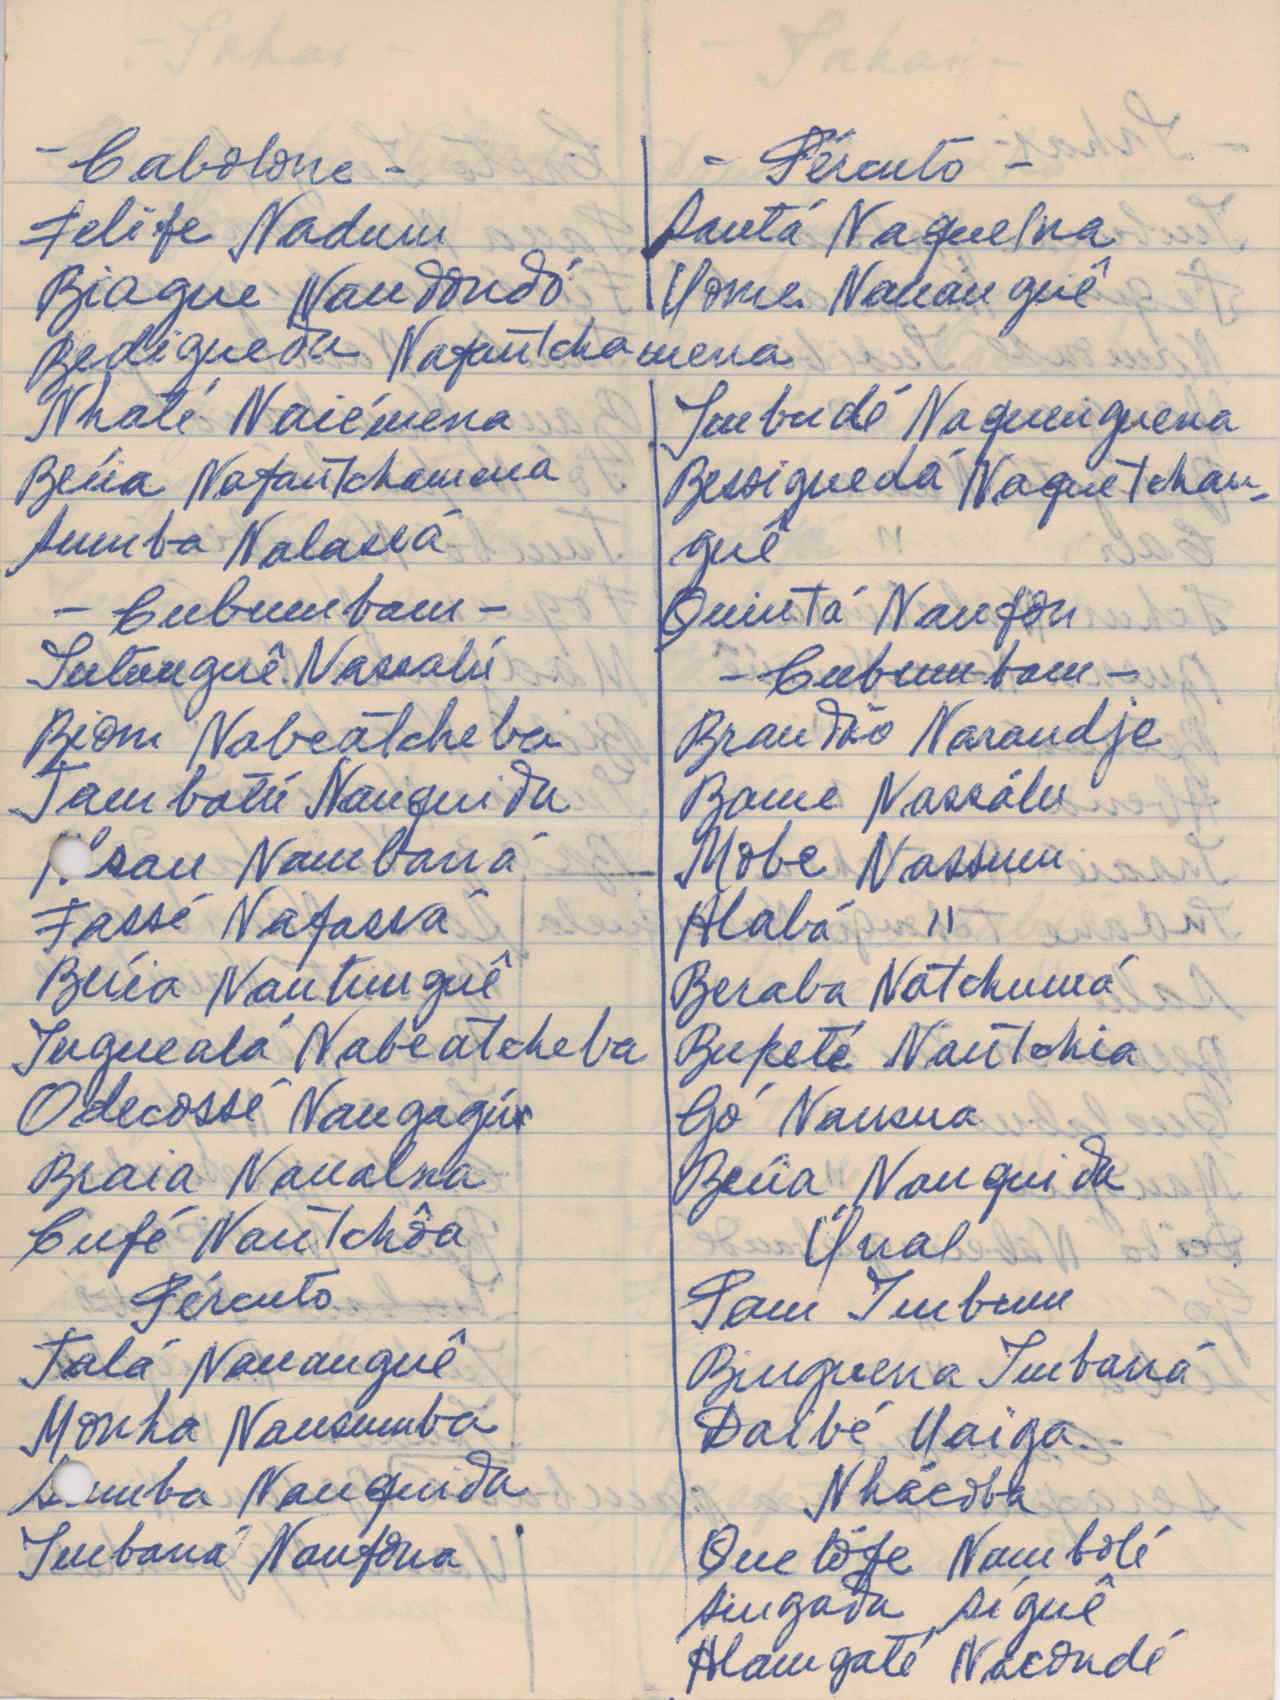 - Cabolone -
Felife Nadum
Biague Nandondó
Bedigueda Nafantchamena
Nhaté Naiémena
Beúa Nafantchamena
Sumba Nalassá
- Cubumbam -
Intunguê Nassalú
Biom Nabeatcheba
Tambatú Nanguida
san Nambaná
Fassé Nafassâ
Beúa Nantunguê
Inguealá Nabeatcheba
Odecossé Nangagú
Braia Nanalna
Cufé Nantchôa
Fércuto
Talá Nananguê
Monha Nansumba
Sumba Nanquida
Imbaná Nanfona
- Fércuto -
Santá Naquelna
Uome Nananguê
Imbudé Naquinguena
Bessiguedá Naquetchan-
guê
Quintá Nanfon
- Cubumbam -
Brandão Narandje
Bame Nassálu
Mobe Nassum
Alabá "
Beraba Natchumá
Bupeté Nantchia
Gó Nansua
Beúa Nanquida
Únal
Pam Imbum
Binguena Imbaná
Daibé Uaiga
Nhácoba
Quetofe Nambolé
Singada Siguê
Alamgaté Nacondé